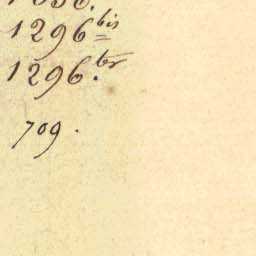 1296 bis
1296. ter
709.